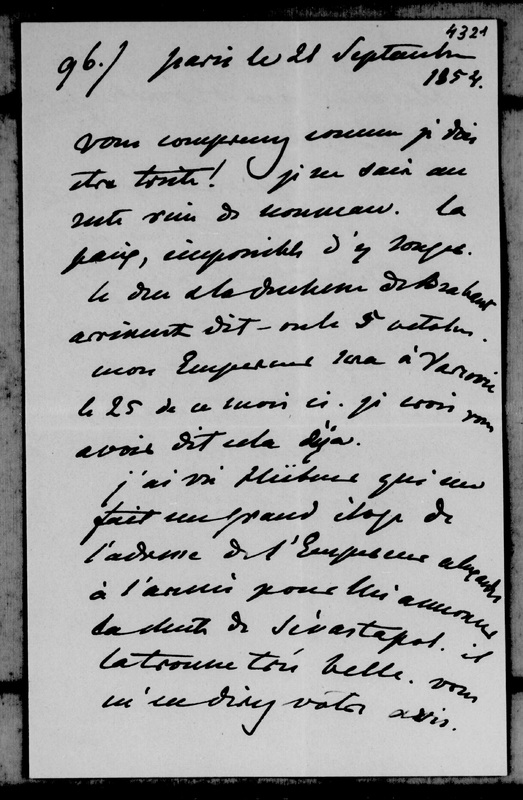 4321
96./ Paris le 21 Septembre
1854.
vous comprenez comme je dois
etre triste! je ne sais au
reste rien de nouveau. La
paix, impossible d'y songer.
le duc & la duchesse de Brabant
arrivent dit-on le 5 octobre.
mon Empereur sera à Varsovie
le 25 de ce mois ci. je crois vous
avoir dit cela déja.
j'ai vu Hübner qui me
fait un grand éloge de
l'adresse de l'Empereur alexandre
à l'armée pour lui annoncer
la chute de Sévastopol. il
la trouve très belle. vous
m'en direz votre avis.